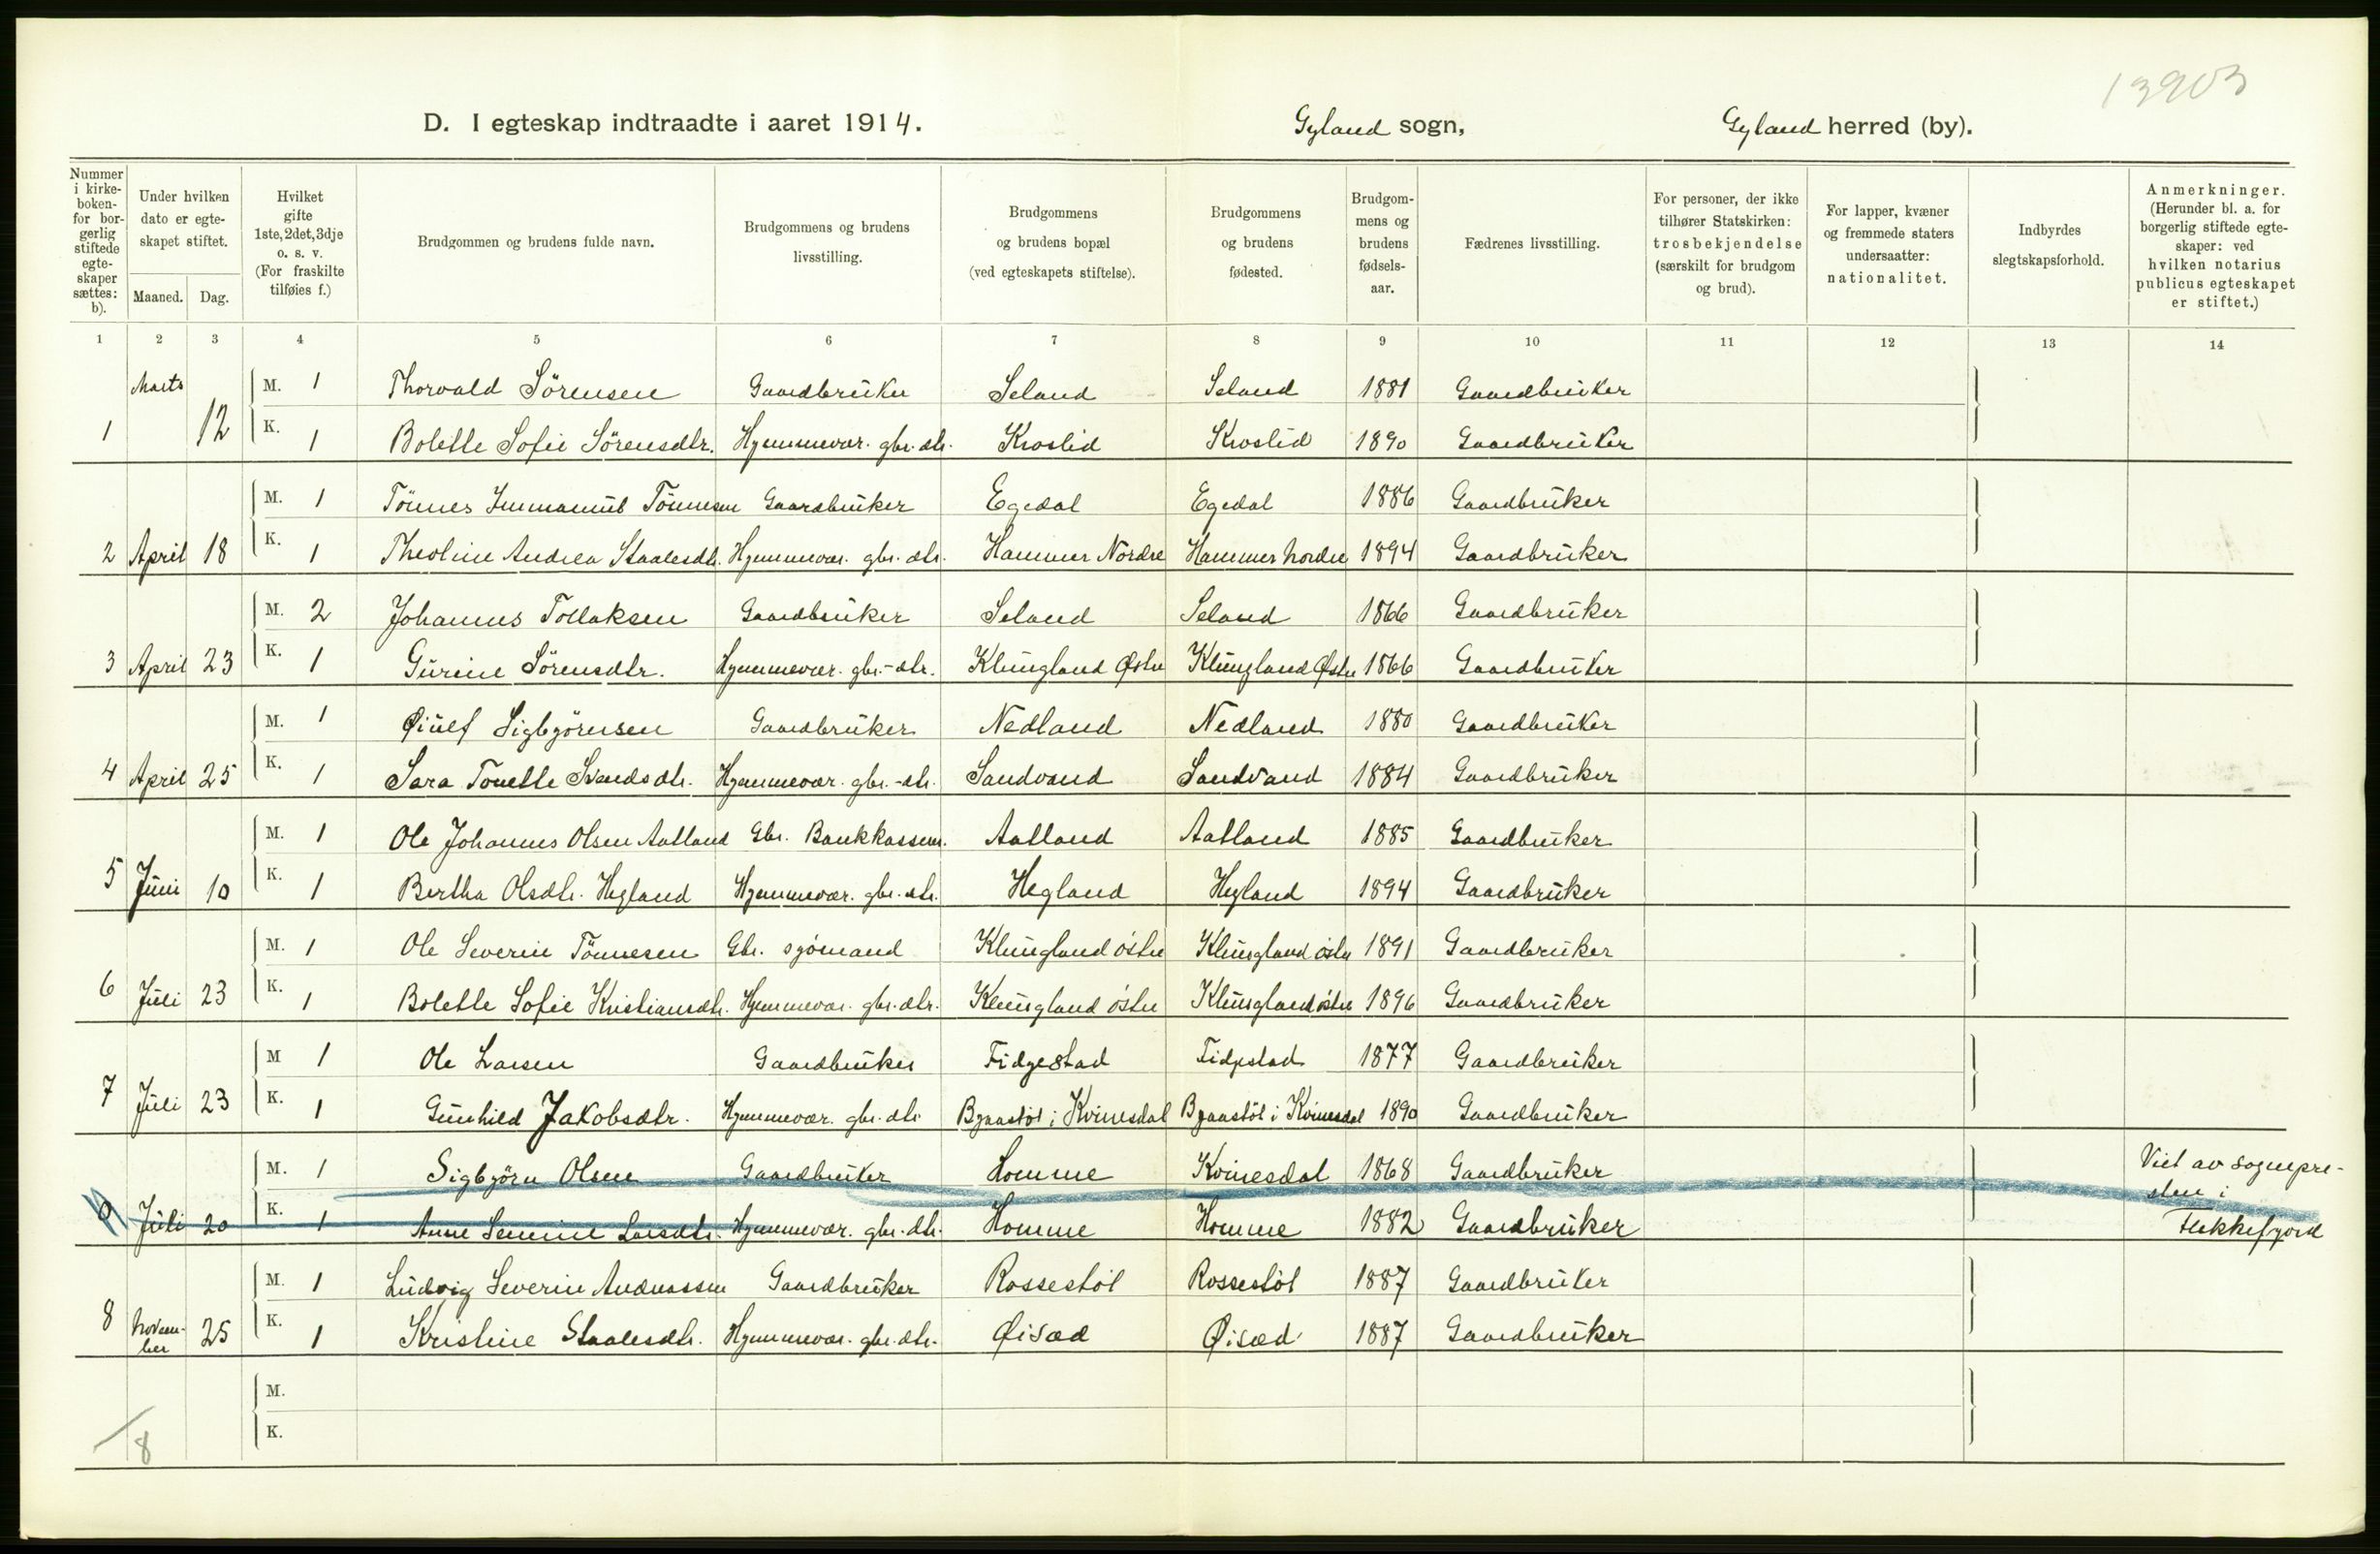 13903
D. I egteskap indtraadte i aaret 1914. Gyland sogn, Gyland herred (by).
Nummer i kirke-boken- for bor-gerlig stiftede egte-skaper sættes: b). Under hvilken dato er egte-skapet stiftet. Maaned. Dag. Hvilket gifte 1ste, 2det, 3dje o. s. v. (For fraskilte tilføies f.) Brudgommen og brudens fulde navn. Brudgommens og brudens livsstilling. Brudgommens og brudens bopæl (ved egteskapets stiftelse). Brudgommens og brudens fødested. Brudgom-mens og brudens fødsels-aar. Fædrenes livsstilling. For personer, der ikke tilhører Statskirken: trosbekjendelse (særskilt for brudgom og brud). For lapper, kvæner og fremmede staters undersaatter: nationalitet. Indbyrdes slegtskapsforhold. Anmerkninger. (Herunder bl. a. for borgerlig stiftede egte-skaper: ved hvilken notarius publicus egteskapet er stiftet.)
1 2 3 4 5 6 7 8 9 10 11 12 13 14
Marts M. 1 Thorvald Sörensen Gaardbruker Seland Seland 1881 Gaardbruker
1 12 K. 1 Bolette Sofie Sörensdtr. Hjemmevær. gbr. dtr. Kroslid Kroslid 1890 Gaardbruker
M. 1 Tönnes Immanuel Tönnesen Gaardbruker Egedal Egedal 1886 Gaardbruker
2 April 18 K. 1 Theoline Andrea Staalesdtr. Hjemmevær. gbr. dtr. Hammer Nordre Hammer Nordre 1894 Gaardbruker
M. 2 Johannes Tollaksen Gaardbruker Seland Seland 1866 Gaardbruker
3 April 23 K. 1 Gurine Sörensdtr. Hjemmevær. gbr.-dtr. Klungland Østre Klungland Østre 1866 Gaardbruker
M. 1 Øiulf Sigbjörnsen Gaardbruker Nedland Nedland 1880 Gaardbruker
4 April 25 K. 1 Sara Tonette Svendsdtr. Hjemmevær. gbr.-dtr. Sandvand Sandvand 1884 Gaardbruker
M. 1 Ole Johannes Olsen Aatland Gbr. Bankkasserer. Aatland Aatland 1885 Gaardbruker
5 Juni 10 K. 1 Bertha Olsdtr. Hegland Hjemmevær. gbr. dtr. Hegland Hegland 1894 Gaardbruker
M. 1 Ole Severin Tönnesen Gbr. sjömand Klungland östre Klungland östre 1891 Gaardbruker
6 Juli 23 K. 1 Bolette Sofie Kristiansdtr. Hjemmevær. gbr. dtr. Klungland östre Klungland östre 1896 Gaardbruker
M 1 Ole Larsen Gaardbruker Fidgestad Fidjestad 1877 Gaardbruker
7 Juli 23 K. 1 Gunhild Jakobsdtr. Hjemmevær. gbr. dtr. Bjaastöl i Kvinesdal Bjaastöl i Kvinesdal 1890 Gaardbruker
M. 1 Sigbjörn Olsen Gaardbruker Homme Kvinesdal 1868 Gaardbruker Viet av sognepre-
sten i
Juli 20 K. 1 Anne Larsdtr. Hjemmevær. gbr. dtr. Homme Homme 1882 Gaardbruker Flekkefjord
M. 1 Ludvig Severin Andreassen Gaardbruker Rossestöl Rossestöl 1887 Gaardbruker
8 Novem-ber 25 K. 1 Kristine Staalesdtr. Hjemmevær. gbr. dtr. Øisæd Øisæd 1887 Gaardbruker
M.
K.
8